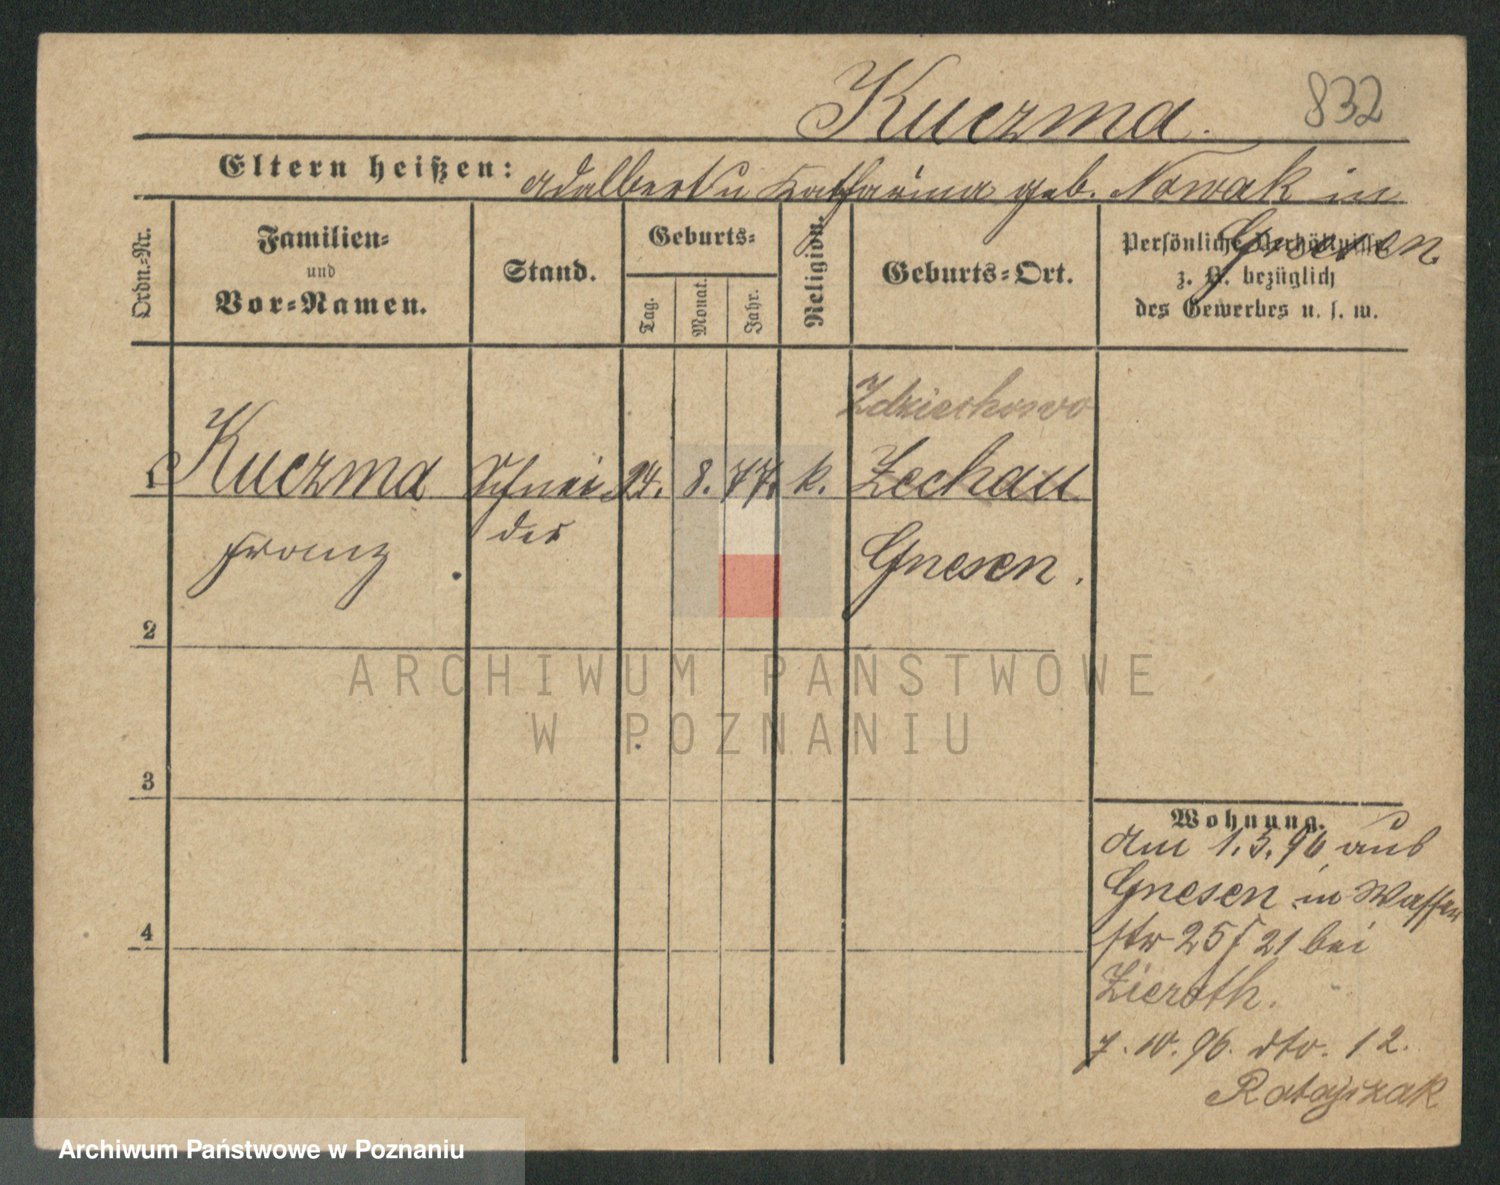 Kuczma.
832
Eltern heißen: Adalbert u Katharina geb. Nowak in
Gnesen.
Ordn.-Nr.
Familien-
und
Vor-Namen.
Stand.
Geburts-
Tag.
Monat.
Jahr.
Religion.
Geburts-Ort.
Persönliche Verhältnisse
z. B. bezüglich
des Gewerbes u. s. w.
Zdziechowo
1 Kuczma Schnei 24. 8. 77. k. Zechau
Franz der Gnesen.
2
ARCHIWUM PAŃSTWOWE
W POZNANIU
3
Wohnung.
am 1.5.96 aus
Gnesen in Wasser
4
str 25/21 bei
Zieroth.
7.10.96. dto. 12.
Ratajczak
Archiwum Państwowe w Poznaniu